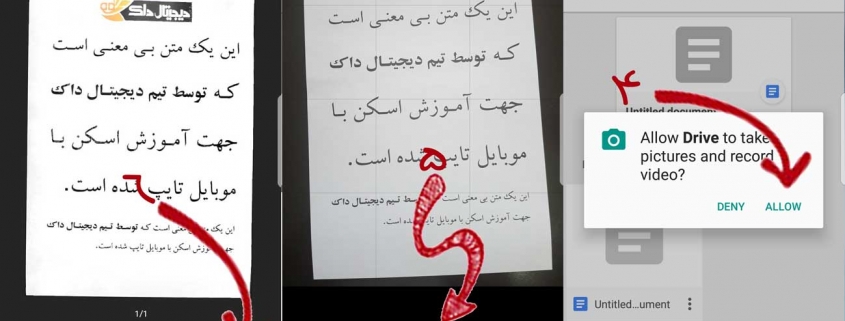 ۴
Untitled document
Allow Drive to take
pictures and record
video?
DENY ALLOW
Untitled...ument
این یک متن بی معنی است
که توسط تیم دیجیتال داک
جهت آموزش اسکن با
موبایل تایپ شده است.
۵
این یک متن بی معنی است که توسط تیم دیجیتال داک
جهت آموزش اسکن با موبایل تایپ شده است.
دیجیتال داک
این یک متن بی معنی است
که توسط تیم دیجیتال داک
جهت آموزش اسکن با
موبایل تایپ شده است.
۶
این یک متن بی معنی است که توسط تیم دیجیتال داک
جهت آموزش اسکن با موبایل تایپ شده است.
1/1